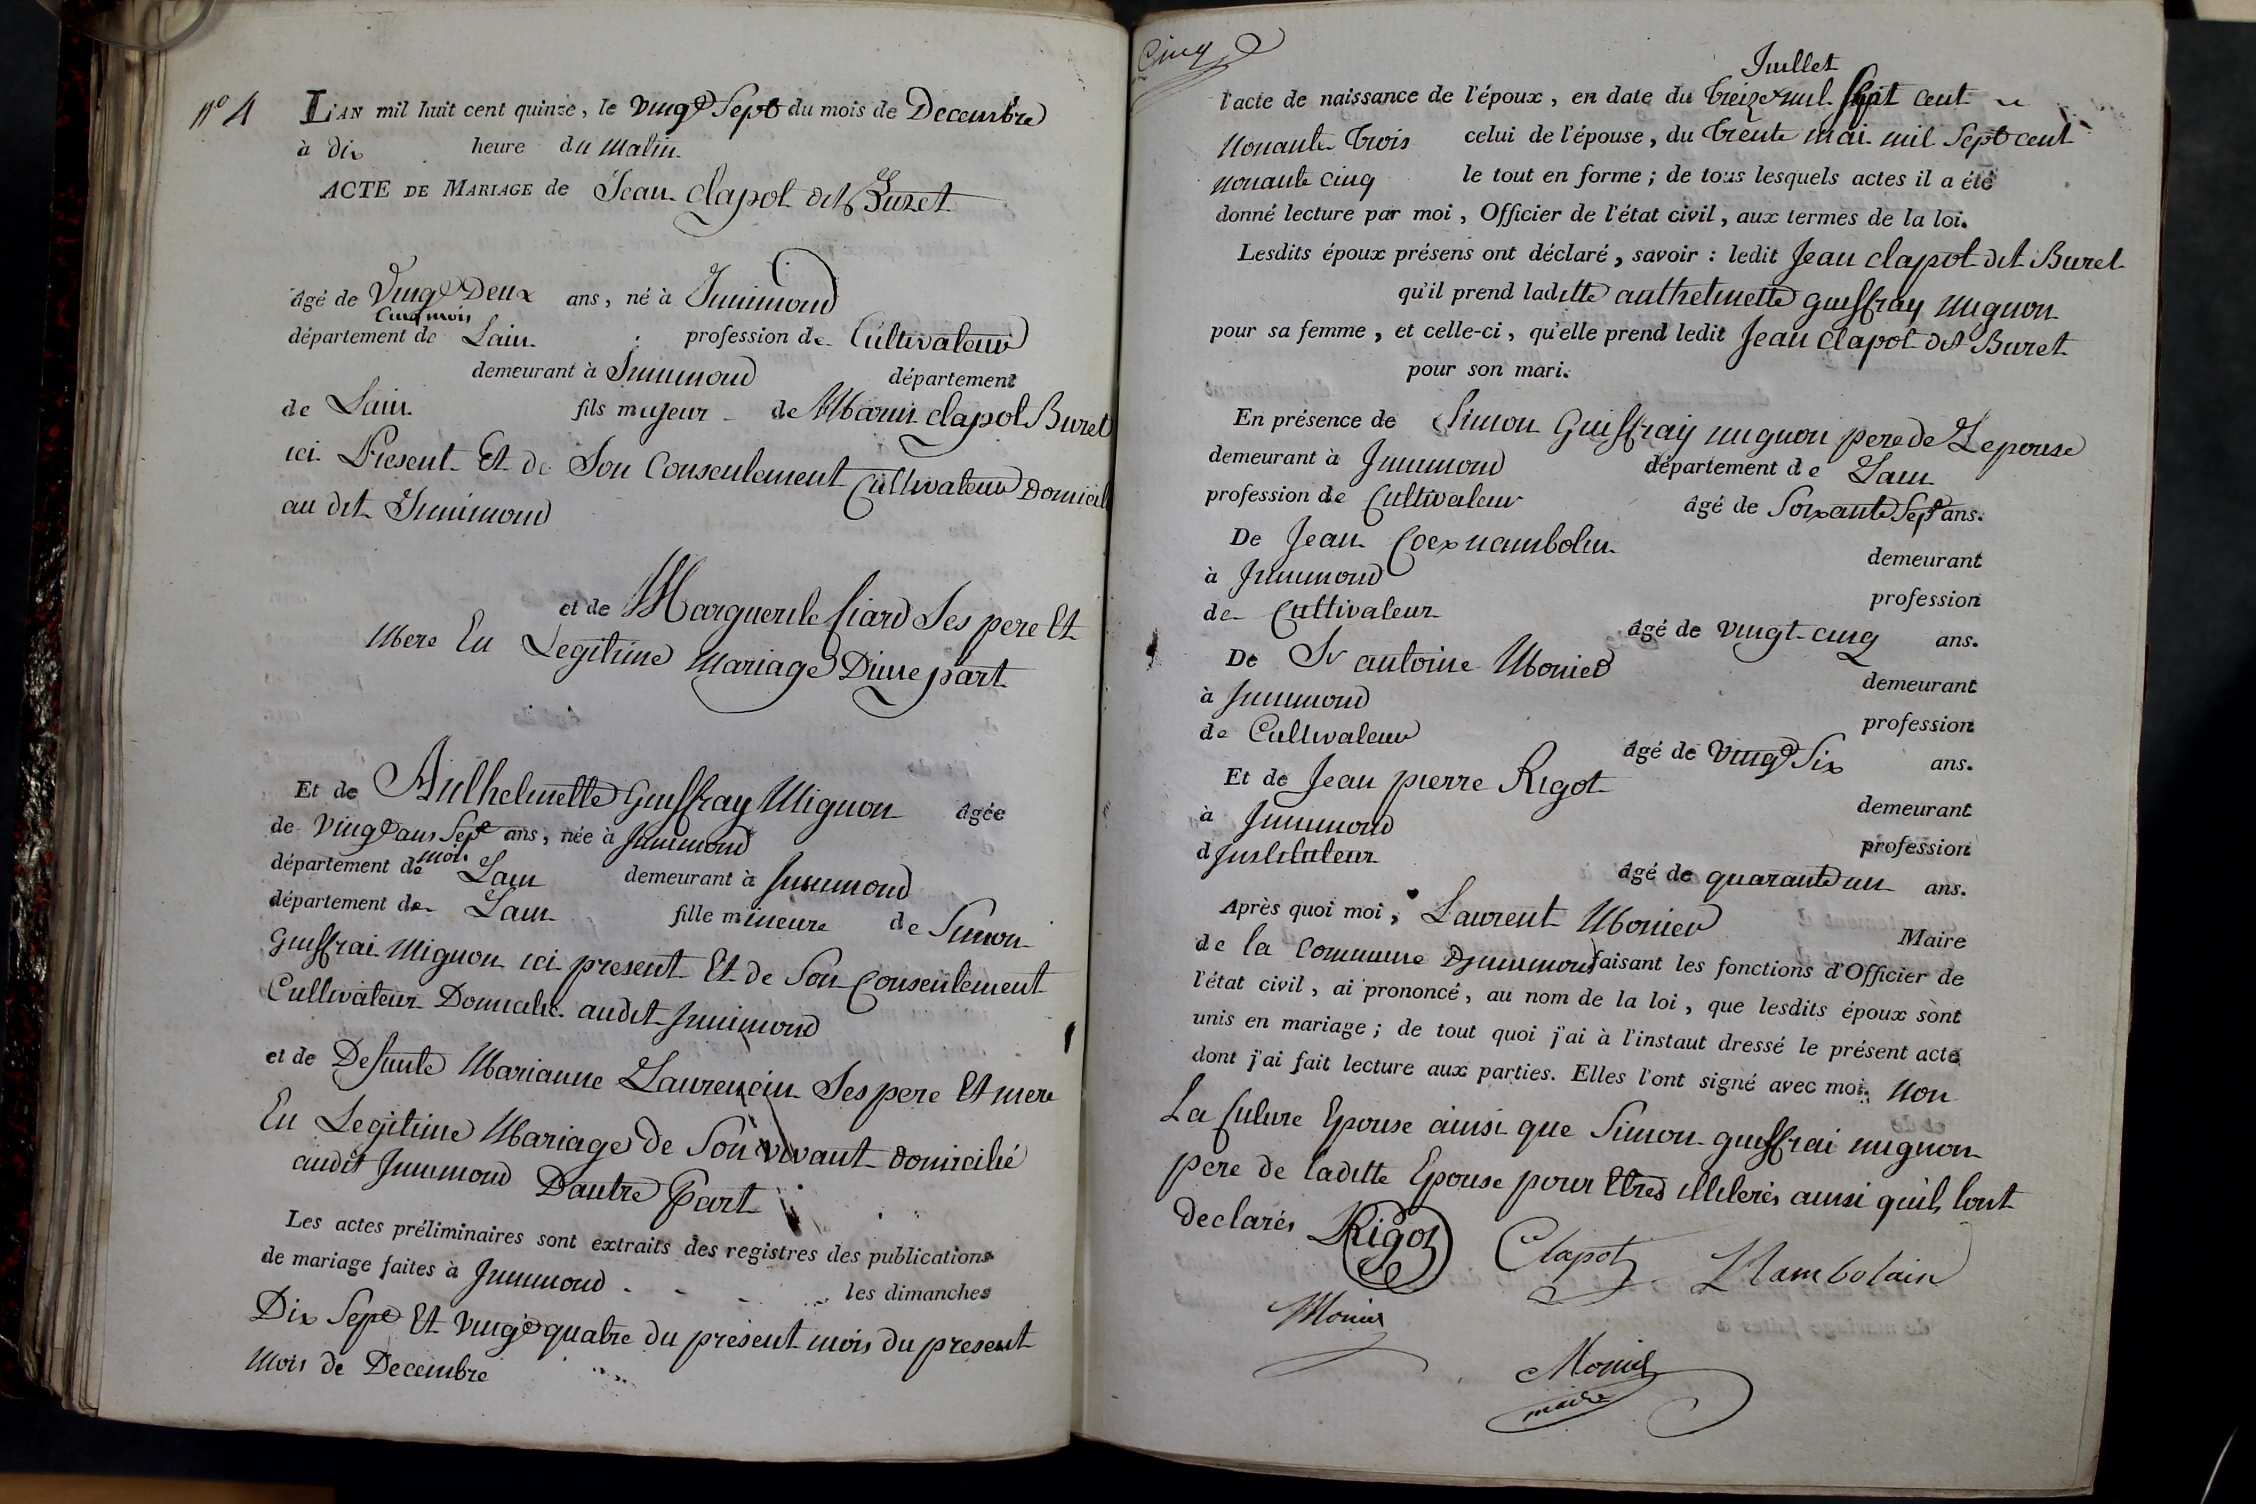 n.º 4
L'AN mil huit cent quinze, le vingt Sept du mois de Decembre
à dix heure du matin
ACTE DE MARIAGE de Jean Clapot dit Buret
âgé de Vingt Deux ans, né à Innimond
Cinq mois
département de Lain profession de Cultivateur
demeurant à Inimond département
de Lain fils majeur de Marin Clapot Buret
ici Present Et de Son Consentement Cultivateur Domicil
au dit Innimond
et de Marguerite fiard Ses pere Et
Mere En Legitime Mariage D'une part
Et de Anthelmette Guiffray Mignon âgée
de Vingt ans Sept ans, née à Innimond
mois
département de Lain demeurant à Innimond
département de Lain fille mineure de Simon
Guiffrai Mignon ici present Et de Son Consentement
Cultivateur Domicilié audit Innimond
et de Defunte Marianne Laurencin Ses pere Et mere
En Legitime Mariage de Son vivant domicilié
audit Innimond Dautre Part
Les actes préliminaires sont extraits des registres des publications
de mariage faites à Innimond les dimanches
Dix Sept Et vingt quatre du present mois du present
Mois de Decembre
Cinq
Juillet
l'acte de naissance de l'époux, en date du treize mil Sept cent
nonante trois celui de l'épouse, du trente mai mil Sept cent
nonante cinq le tout en forme; de tous lesquels actes il a été
donné lecture par moi, Officier de l'état civil, aux termes de la loi.
Lesdits époux présens ont déclaré, savoir : ledit Jean Clapot dit Buret
qu'il prend laditte anthelmette guiffray mignon
pour sa femme, et celle-ci, qu'elle prend ledit Jean Clapot dit Buret
pour son mari.
En présence de Simon Guiffray mignon pere de Lepouse
demeurant à Innimond département de Lain
profession de Cultivateur âgé de Soixante Sept ans.
De Jean Coex nambolin demeurant
à Innimond profession
de Cultivateur âgé de vingt cinq ans.
De Sr antoine Monier demeurant
à Innimond profession
de Cultivateur âgé de vingt Six ans.
Et de Jean pierre Rigot demeurant
à Innimond profession
d Instituteur âgé de quarante un ans.
Après quoi moi, Laurent Monier Maire
de la Commune D'innimond faisant les fonctions d'Officier de
l'état civil, ai prononcé, au nom de la loi, que lesdits époux sont
unis en mariage; de tout quoi j'ai à l'instaut dressé le présent acte
dont j'ai fait lecture aux parties. Elles l'ont signé avec moi. Non
La future Epouse ainsi que Simon guiffrai mignon
pere de laditte Epouse pour Etres illiterés ainsi quils lont
declarés Rigot Clapot Nambotain
Monier
Monier
maire